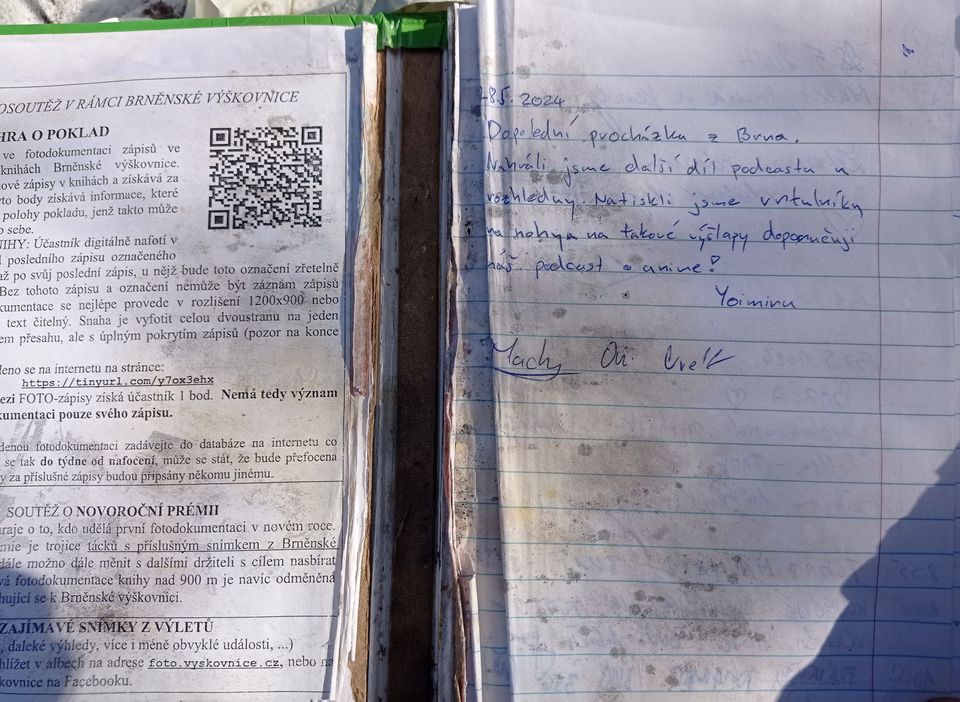 OSOUTĚŽ V RÁMCI BRNĚNSKÉ VÝŠKOVNICE
HRA O POKLAD
ve fotodokumentaci zápisů ve
knihách Brněnské výškovnice.
ové zápisy v knihách a získává za
yto body získává informace, které
polohy pokladu, jenž takto může
o sebe.
NIHY: Účastník digitálně nafotí v
posledního zápisu označeného
až po svůj poslední zápis, u nějž bude toto označení zřetelně
Bez tohoto zápisu a označení nemůže být záznam zápisů
kumentace se nejlépe provede v rozlišení 1200x900 nebo
text čitelný. Snaha je vyfotit celou dvoustranu na jeden
em přesahu, ale s úplným pokrytím zápisů (pozor na konce
deno se na internetu na stránce:
https://tinyurl.com/y7ox3ehx
ezi FOTO-zápisy získá účastník 1 bod. Nemá tedy význam
kumentaci pouze svého zápisu.
denou fotodokumentaci zadávejte do databáze na internetu co
se tak do týdne od nafocení, může se stát, že bude přefocena
y za příslušné zápisy budou připsány někomu jinému.
SOUTĚŽ O NOVOROČNÍ PRÉMII
hraje o to, kdo udělá první fotodokumentaci v novém roce.
mie je trojice tácků s příslušným snímkem z Brněnské
dále možno dále měnit s dalšími držiteli s cílem nasbírat
vá fotodokumentace knihy nad 900 m je navíc odměněna
hující se k Brněnské výškovnici.
ZAJÍMAVÉ SNÍMKY Z VÝLETŮ
, daleké výhledy, více i méně obvyklé události, ...)
hlížet v albech na adrese foto.vyskovnice.cz, nebo na
kovnice na Facebooku.
28.5. 2024
Dopolední procházka z Brna.
Nahráli jsme další díl podcastu u
rozhledny. Natiskli jsme vrtulníky
na nohy a na takové výšlapy doporučuji
náš podcast o anime!
Yoimiru
Machy